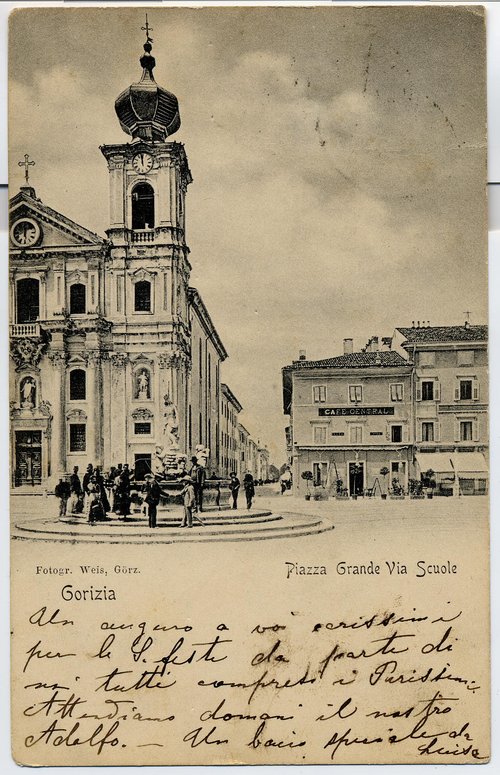 CAFÉ CENTRAL
Fotogr. Weis, Görz.
Piazza Grande Via Scuole
Gorizia
Un auguro a voi carissimi
per le S. feste da parte di
noi tutti compresi i Parissini.
Attendiamo domani il nostro
Adolfo. — Un bacio speciale da
Luisa